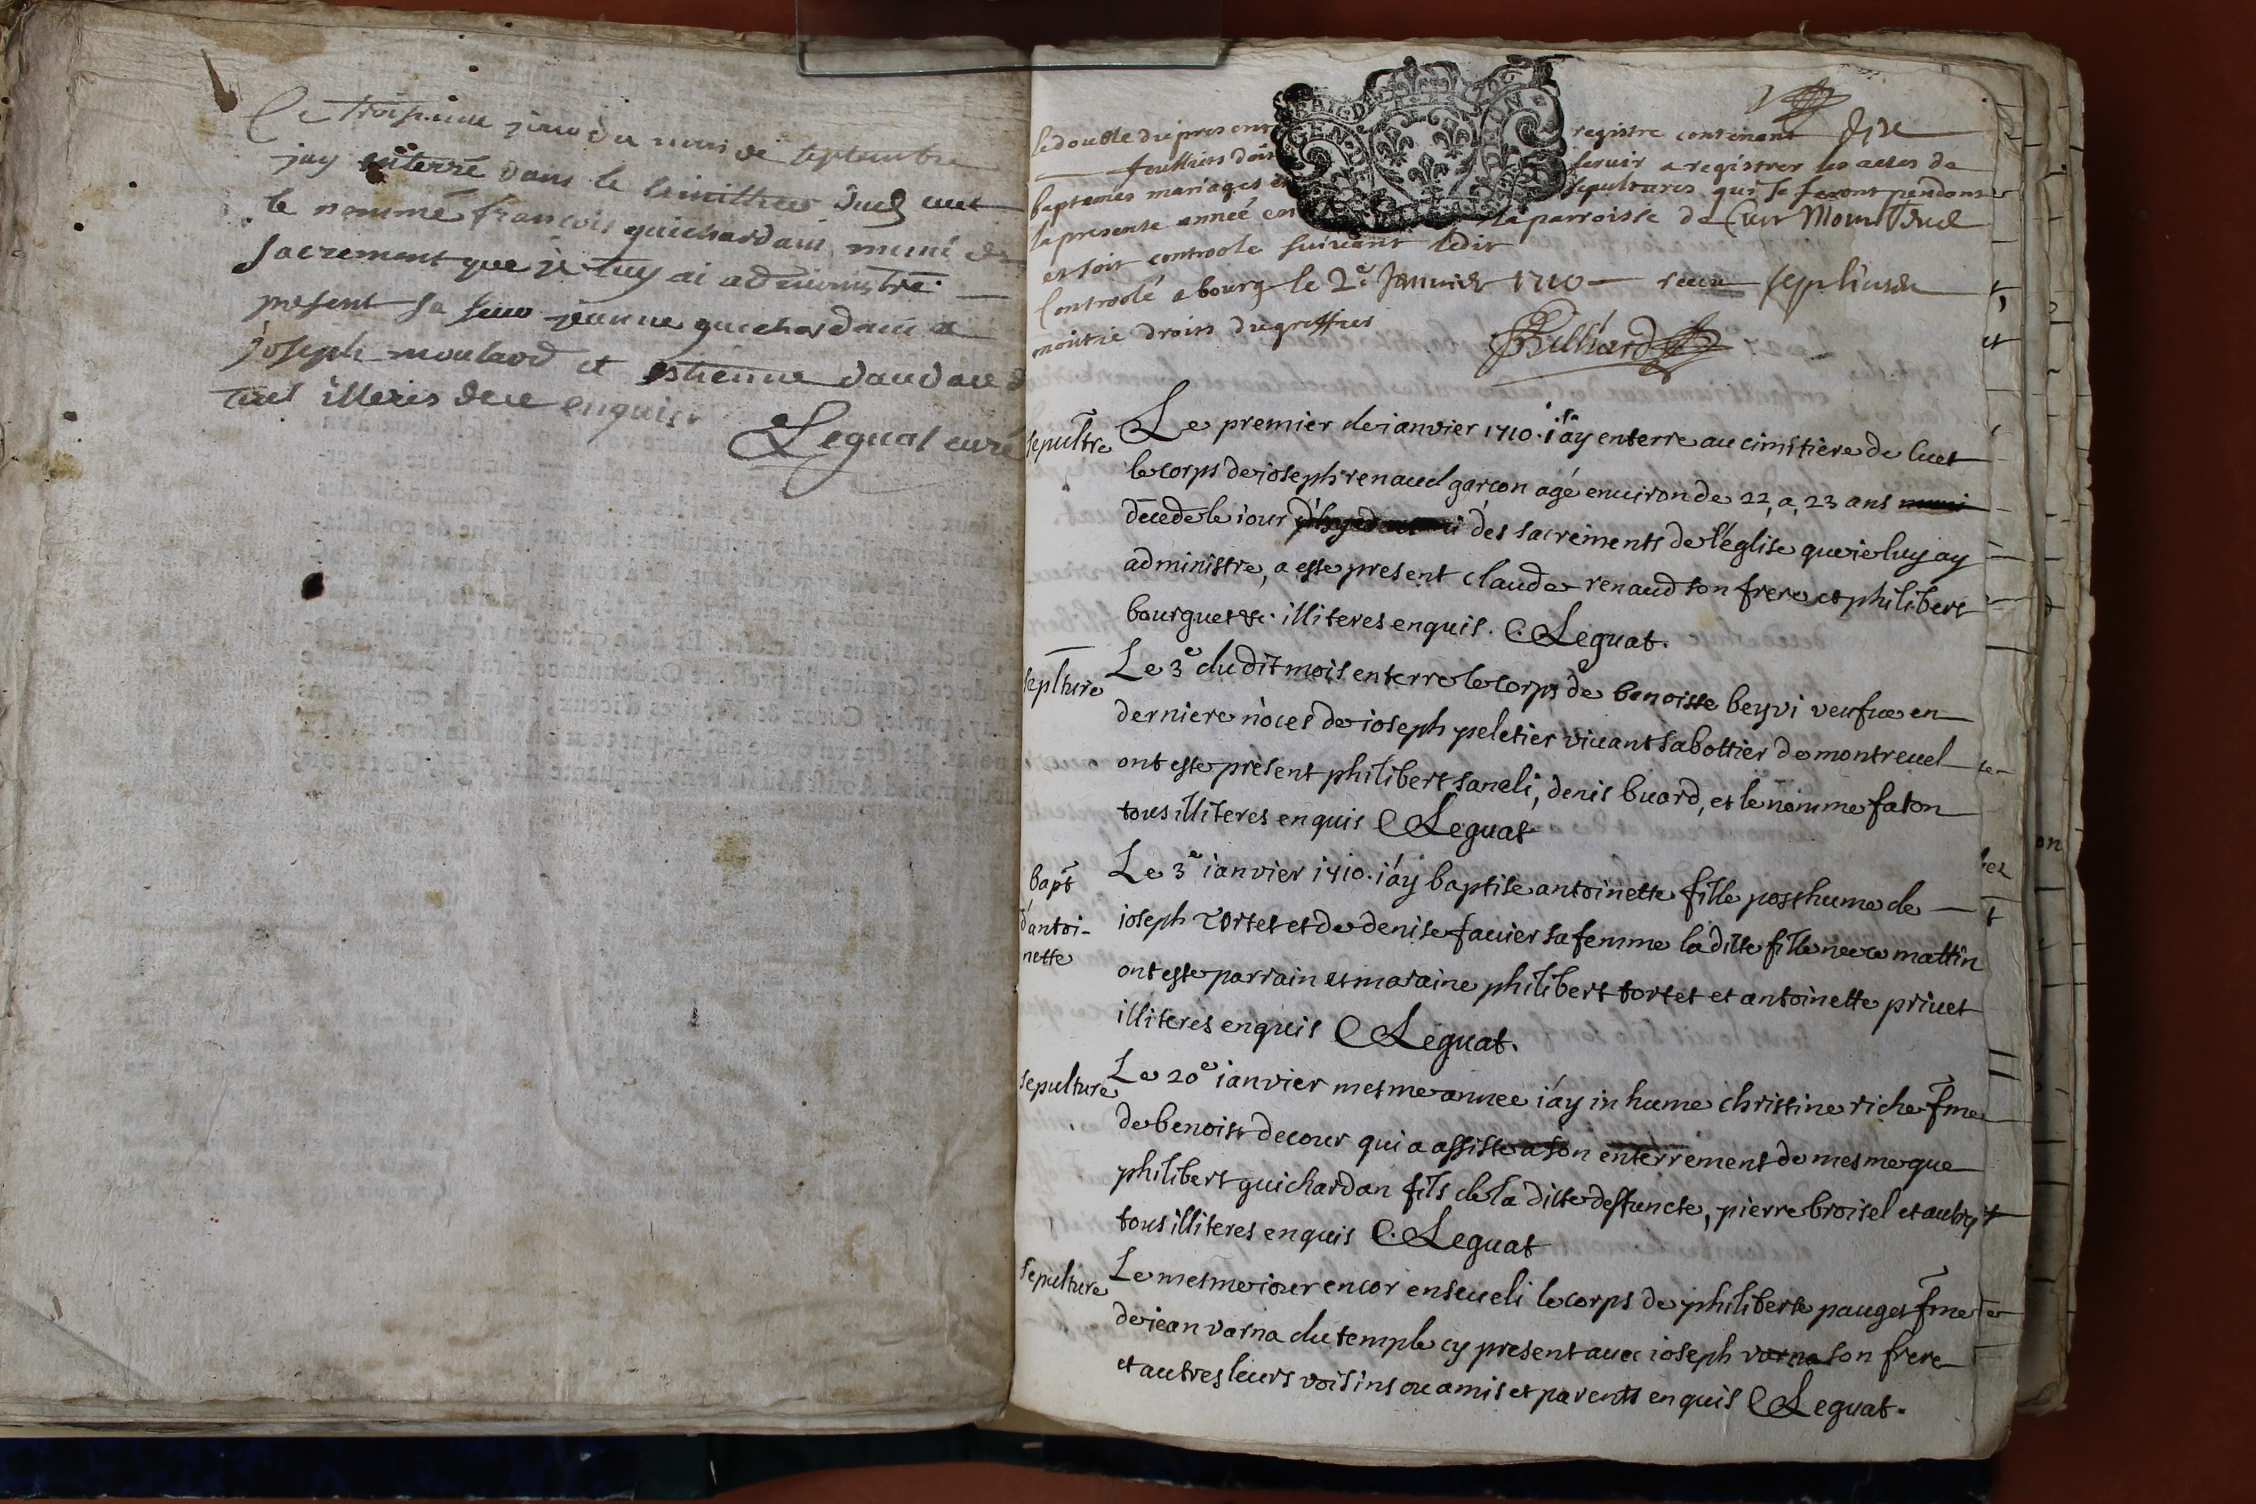 Ce troisieme jour du mois de septembre
jay enterré dans le cimittiere dud cuet
le nommé françois guichardan muni des
sacrement que je luy ai administré
present sa seur jeanne guichardan
joseph moulard et estienne daudare
tous illeres de ce enquis
Leguat curé
le double du present registre contenant
feulliets doit servir a registrer les actes de
baptemes mariages et sepultures qui se feront pendant
la presente année en la parroisse de Cuet Montreuel
et soit controole suivant ledit
Controolé a bourg le 2e Janvier 1710 receu
moitié droits du greffier
sepultre
Le premier de ianvier 1710. i'ay enterre au cimitiere de Cuet
le corps de ioseph renaud garcon agé environ de 22, a, 23 ans
decede le iour des sacrements de l'église que ie luy ay
administre, a este present claude renaud son frere et philibert
bourguet &c. illiteres enquis. C. Leguat.
seplture
Le 3e du dit mois enterre le corps de benoiste beyvi veufue en
derniere noces de ioseph peletier viuant sabottier de montreuel
ont este present philibert saneli, denis buard, et le nommé faton
tous illiteres enquis C Leguat
bapt
d'antoi-
nette
Le 3e ianvier 1710. i'ay baptise antoinette fille posthume de
ioseph tortet et de denise fauier sa femme la ditte fille nee ce mattin
ont este parrain et maraine philibert tortet et antoinette priuet
illiteres enquis C Leguat.
sepulture
Le 20e ianvier mesme annee i'ay inhume christine riche fme
de benoist decour qui a assiste a son enterrement de mesme que
philibert guichardan fils de la ditte deffuncte, pierre broisel et autres
tous illiteres enquis C. Leguat
sepulture
Le mesme iour encor enseueli le corps de philiberte pauget fme
de iean varna du temple cy present auec ioseph varna son frere
et autres leurs voisins ou amis et parents enquis C Leguat.